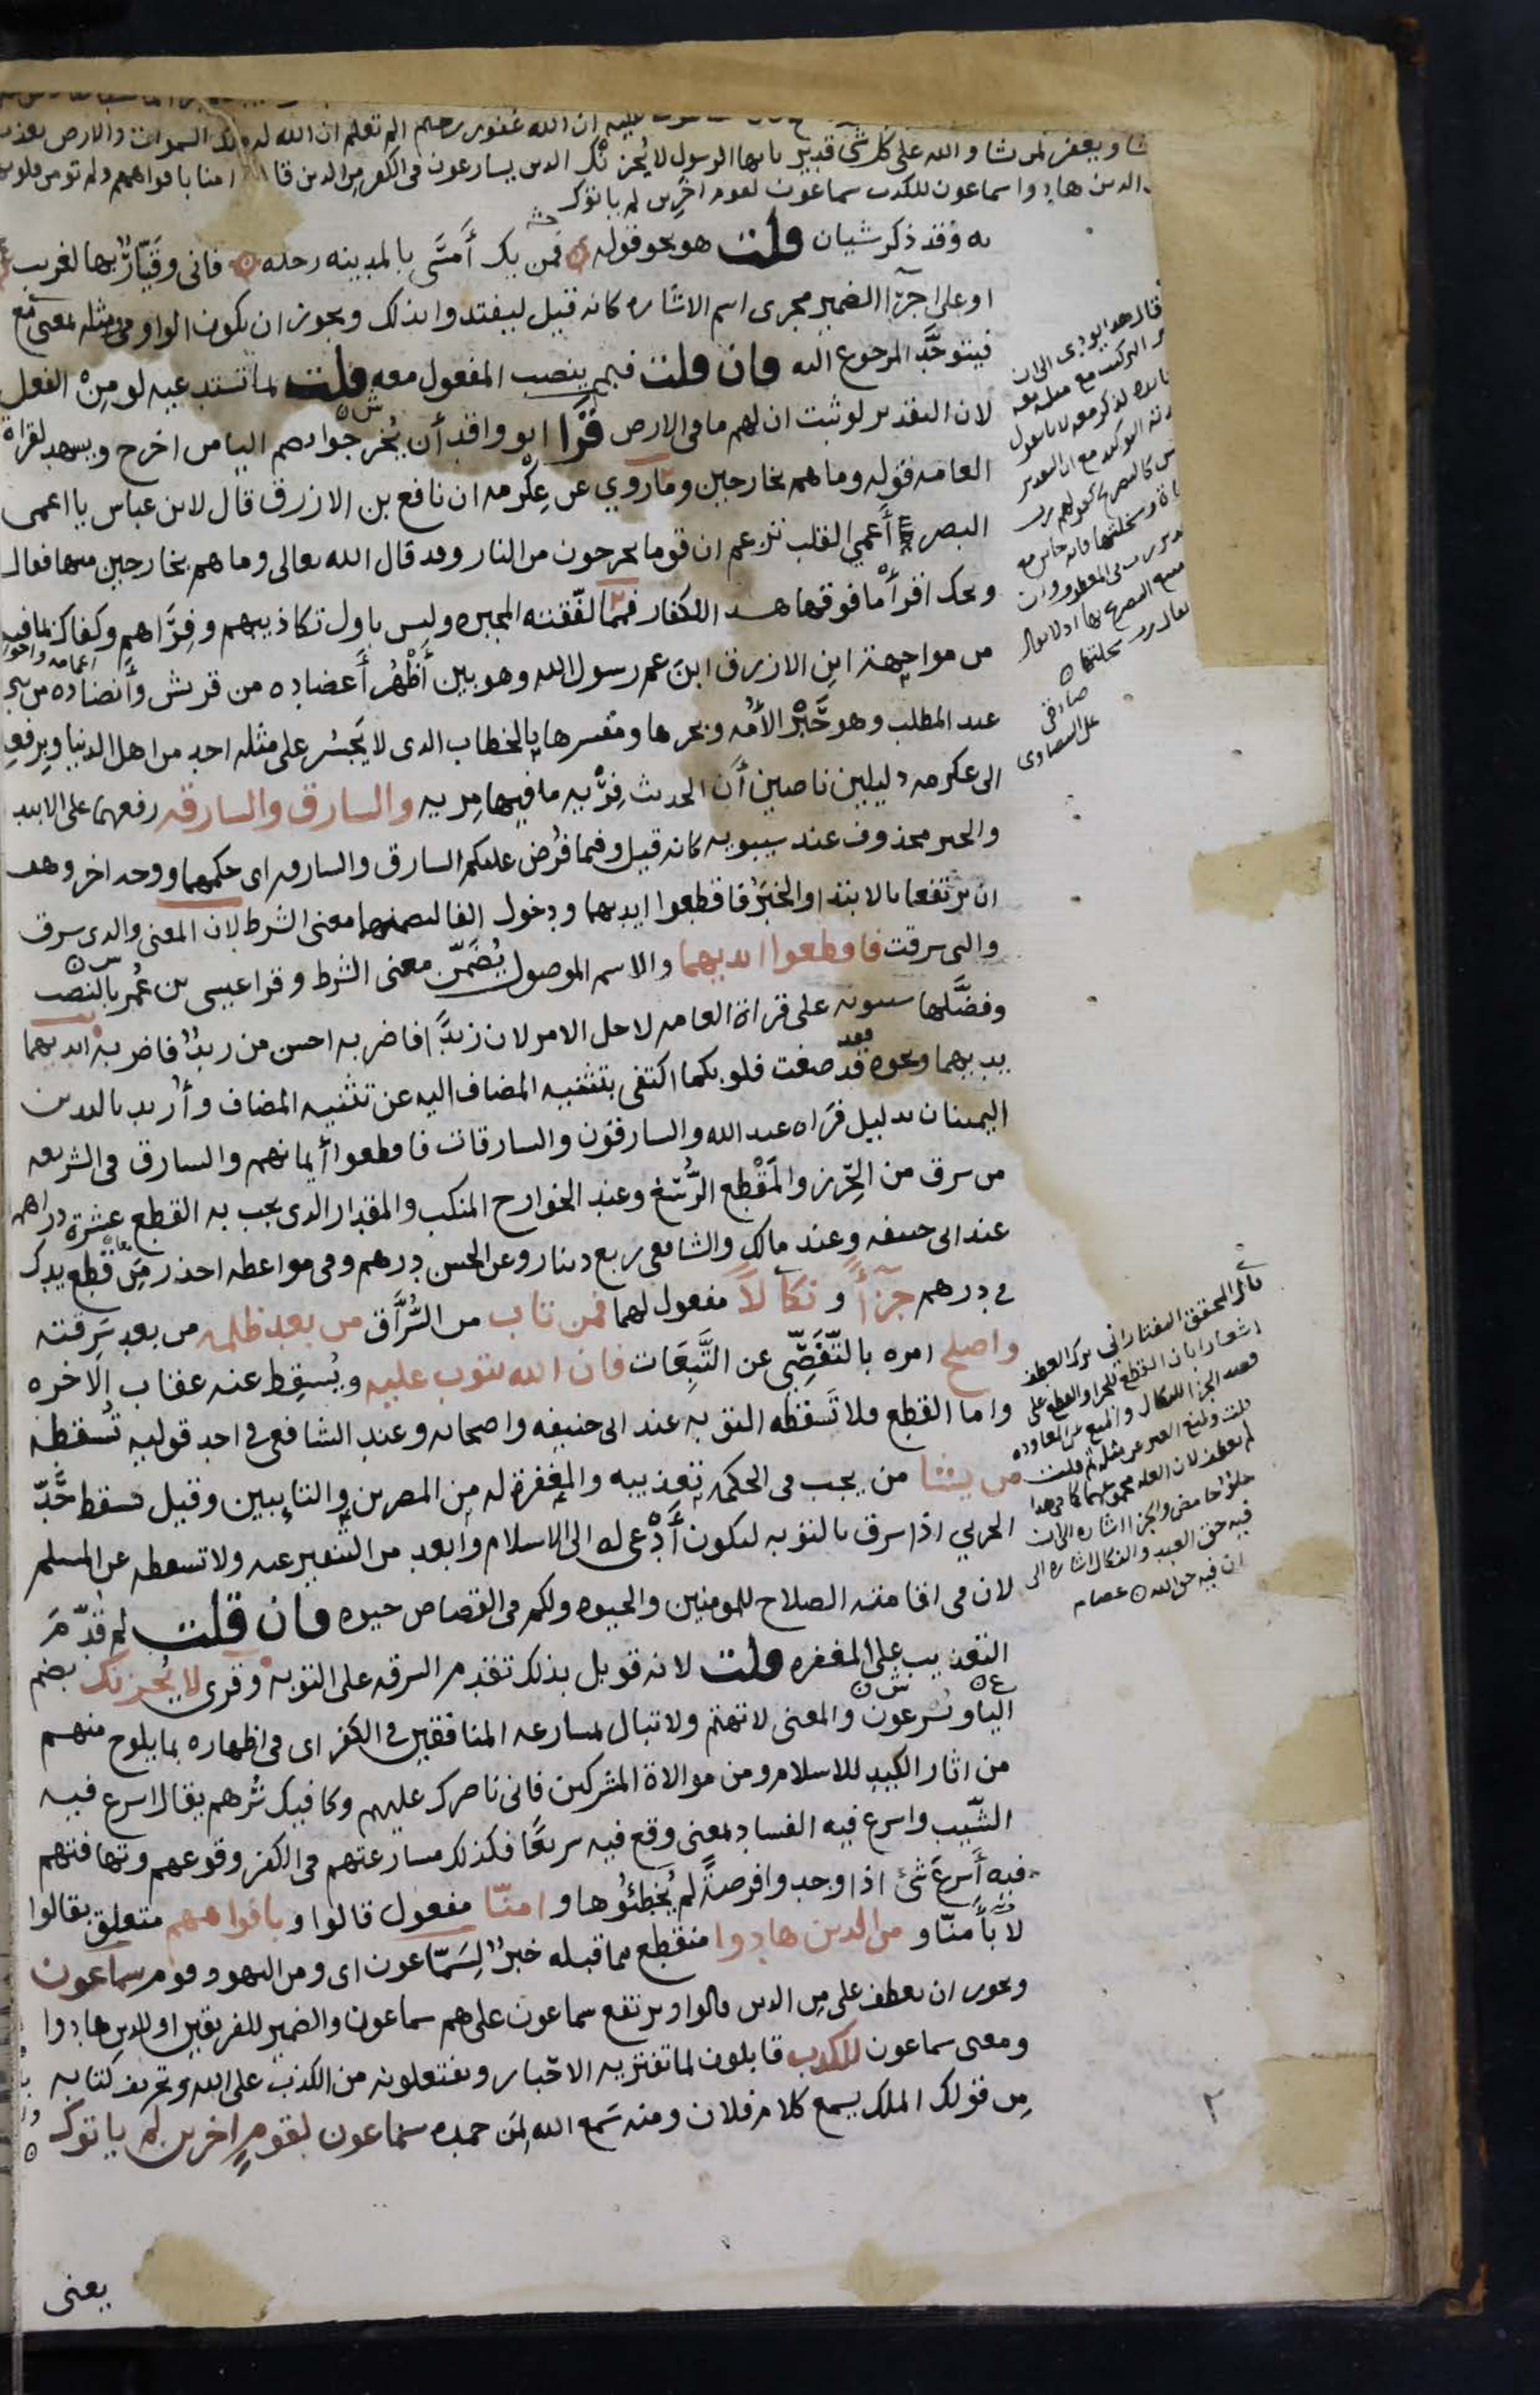 عليه ان الله غفور رحيم الم تعلم ان الله له ملك السموات والارض يعذب
شا ويغفر لمن يشا والله على كل شى قدير يايها الرسول لا يُحزنك الدىن يسارعون فى الكفر من الدىن قالوا امنا بافواههم ولم تومن قلوبهم
الدىن هادوا سماعون للكذب سماعون لقوم اخرين لم ياتوك
به وقد ذكر شيان قلت هو نحو قوله فمن يك أَمسَى بالمدينه رحله فانى وقَيّارٌ بها لغريب
او على اجرا الضمير مجرى اسم الاشاره كانه قيل ليفتدوا بذلك ويجوز ان يكون الواو فى مثله بمعنى مع
فيتوحَّد المرجوع اليه فان قلت فبم ينصب المفعول معه قلت بما تستدعيه لو مِنْ الفعل
لان التقدير لو ثبت ان لهم ما فى الارض قَرَا ابو واقد أن يُخرجوا بضم اليا من اخرج ويشهد لقراة
العامه قوله وما هم بخارجين وما روي عن عِكْرمه ان نافع بن الازرق قال لابن عباس يا اعمى
البصر أَعمي القلب تزعم ان قوما يخرجون من النار وقد قال الله تعالى وما هم بخارجين منها فقال
ويحك اقرأ ما فوقها هذا للكفار فمما لفّقته المجبره وليس باول تكاذيبهم وفِرَاهم وكفاك بما فيه
من مواجهة ابن الازرق ابنَ عم رسول الله وهو بين أَظْهُر أَعضاده من قريش وأَنضاده من بنى
عبد المطلب وهو حَبْر الأمّه وبحرها ومفسرها بالخطاب الذى لا يَجسُر على مثله احد من اهل الدنيا وبرفعه
الى عكرمه دليلين ناصين أنَّ الحديث فِرْيه ما فيها مِريه والسارق والسارقه رفعهما على الابتدا
والخبر محذوف عند سيبويه كانه قيل وفيما فُرض عليكم السارق والسارقه اى حكمهما ووجه اخر وهو
ان يرتفعا بالابتدا والخبَرُ فاقطعوا ايديهما ودخول الفا لتضمنهما معنى الشرط لان المعنى والذى سرق
والتى سرقت فاقطعوا ايديهما والاسم الموصول يُضَمّن معنى الشرط وقرا عيسى بن عُمر بالنصب
وفضّلها سيبويه على قراة العامه لاجل الامر لان زيدًا فاضربه احسن من زيدٌ فاضربه ايديهما
يديهما ونحوه فقد صغت قلوبكما اكتفى بتثنيه المضاف اليه عن تثنيه المضاف وأُريد باليدين
اليمينان بدليل قراه عبد الله والسارقون والسارقات فاقطعوا أيمانهم والسارق فى الشريعه
من سرق من الحِرْز والمَقْطع الرُّسْغ وعند الخوارج المنكب والمقدار الذى يجب به القطع عشرة دراهم
عند ابى حنيفه وعند مالك والشافعى ربع دينار وعن الحسن درهم وفى مواعظه احذر مِن قَطْع يدك
في درهم جزآءً و نكالاً مفعول لهما فمن تاب من السُّرَّاق من بعد ظلمه من بعد سَرِقته
واصلح امره بالتّفَصِّى عن التَّبِعَات فان الله يتوب عليه ويُسقِط عنه عقاب الاخره
واما القطع فلا تَسقطه التوبه عند ابى حنيفه واصحابه وعند الشافعى في احد قوليه تسقطه
من يشا من يجب فى الحكمه تعذيبه والمغفرة له من المصرين والتايبين وقيل تسقط حَدّ
الحربي اذا سرق بالتوبه ليكون أَدْعى له الى الاسلام وأبعد من التنفير عنه ولا تسقطه عن المسلم
لان فى اقامته الصلاح للمومنين والحيوه ولكم فى القصاص حيوه فان قلت لم قُدّمَ
التعذيب على المغفره قلت لانه قوبل بذلك تقدم السرقه على التوبه وقرى لا يُحزنك بضم
اليا ويُسرعون والمعنى لا تهتم ولا تبال لمسارعه المنافقين في الكفر اى فى اظهاره بما يلوح منهم
من اثار الكيد للاسلام ومن موالاة المشركين فانى ناصرك عليهم وكافيك شرهم يقال اسرع فيه
الشّيب واسرع فيه الفساد بمعنى وقع فيه سريعًا فكذلك مسارعتهم فى الكفر وقوعهم وتهافتهم
فيه أسرعَ شى اذا وجدوا فرصةً لم يُخطئوها و امنّا مفعول قالوا و بافواههم متعلق بقالوا
لا بأمنّا و من الذين هادوا منقطع مما قبله خبرٌ لِسَمّاعون اى ومن اليهود قوم سماعون
ويجوز ان يعطف على من الدىن قالوا ويرتفع سماعون على هم سماعون والضمير للفريقين او للذين هادوا
ومعنى سماعون للكذب قابلون لما تفتريه الاحبار ويفتعلونه من الكذب على الله وتحريف كتابه
مِن قولك الملك يسمع كلام فلان ومنه سَمع الله لِمَن حمده سماعون لقومٍ اخرين لم ياتوك
يعنى
صادقى
على البيضاوى
قال المحقق التفتازانى ترك العطف
اشعارا بان القطع للجزا والقطع على
قصد الجزا للنكال والمنع عن المعاوده
لم يعطف لان العله مجموعهما كما فى هذا
حلوٌ حامض والجزا اشاره الى ان
فيه حق العبد والنكال اشاره الى
ان فيه حق الله عصام
٢